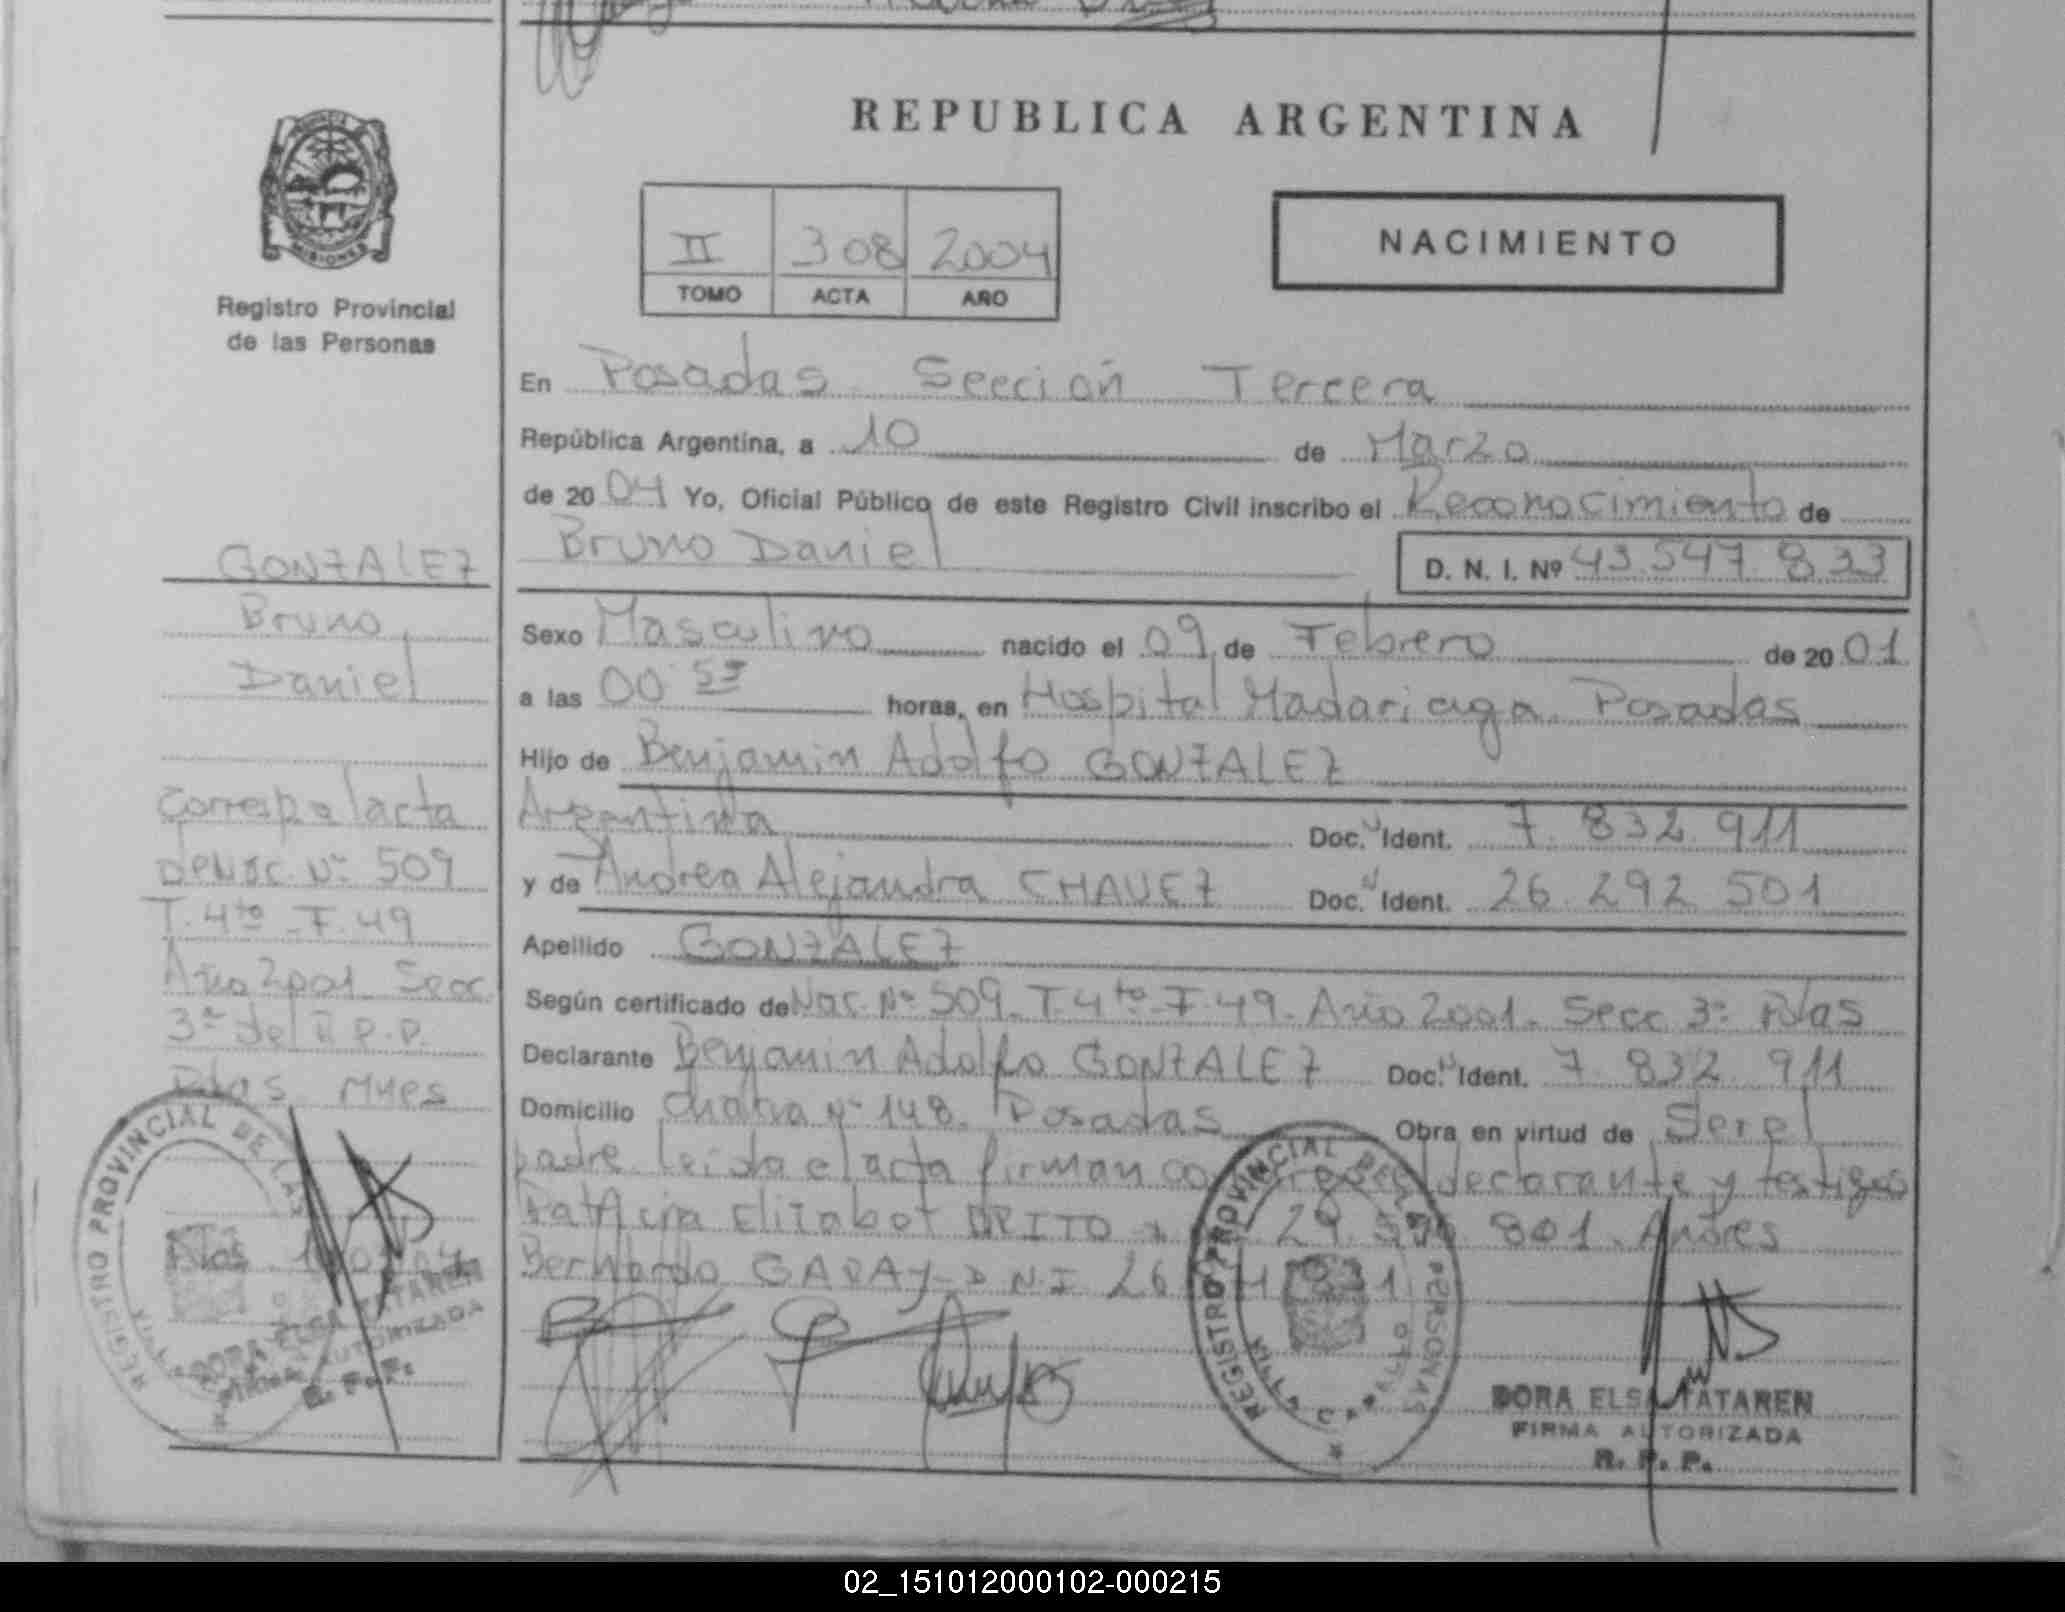 REPUBLICA ARGENTINA
PROVINCIA
MISIONES
Registro Provincial
de las Personas
II 308 2004
TOMO ACTA AÑO
NACIMIENTO
En Posadas Sección Tercera
República Argentina, a 10 de Marzo
de 2004 Yo, Oficial Público de este Registro Civil inscribo el Reconocimiento de
Bruno Daniel D. N. I. Nº 43.547.833
Sexo Masculino nacido el 09 de Febrero de 2001
a las 00 horas, en Hospital Madariaga. Posadas
Hijo de Benjamin Adolfo GONZALEZ
Argentina Doc. N Ident. 7.832.911
y de Andrea Alejandra CHAVEZ Doc. N Ident. 26.292.501
Apellido GONZALEZ
Según certificado de Nac. Nº 509. T. 4to F. 49. Año 2001. Secc 3ª Pdas
Declarante Benjamin Adolfo GONZALEZ Doc. N Ident. 7.832.911
Domicilio Nº 148. Posadas Obra en virtud de Ser el
padre. Leida el acta firman declarante y testigos
Elizabet BRITO 29. 801. Andres
Bernardo GARAY D N I 26
GONZALEZ
Bruno
Daniel
Corresp. al acta
de Nac. Nº 509
T. 4to F. 49
Año 2001. Secc.
3ª del R.P.P.
Pdas Mnes
Pdas.
REGISTRO PROVINCIAL DE LAS
DORA ELSA TATAREN
FIRMA AUTORIZADA
R. P. P.
REGISTRO PROVINCIAL DE LAS PERSONAS
DORA ELSA TATAREN
FIRMA AUTORIZADA
R. P. P.
02_151012000102-000215